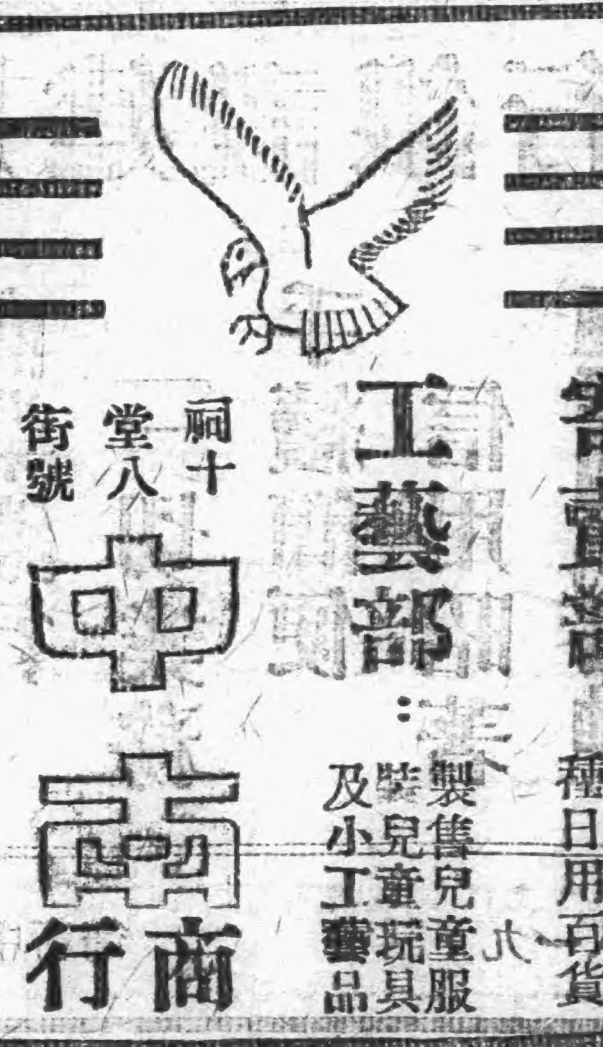 寄賣部
種日用百貨
工藝部：
製售兒童服
裝兒童玩具
及小工藝品
祠堂街
十八號
中南
商行